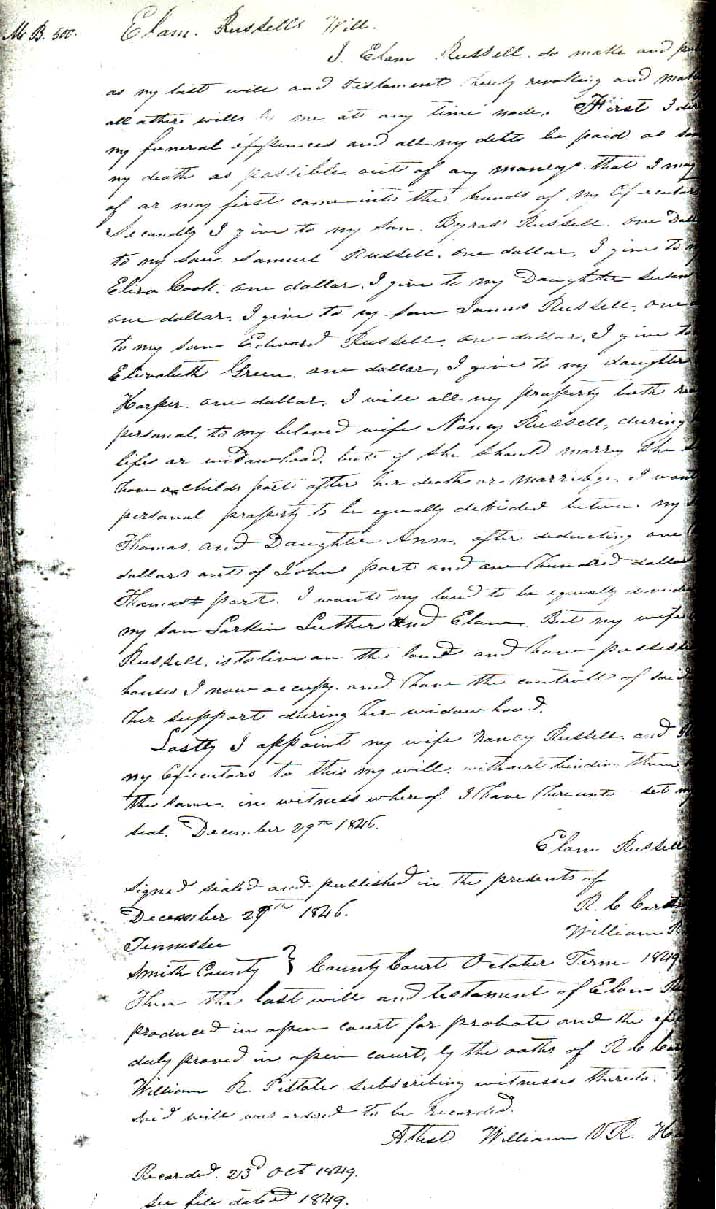 M B. 500.
Elam. Russell's Will.
I. Elam Russell. do make and
as my last will and testament hereby revoking and
all others wills by me at any time made. First I
my funeral expences and all my debts be paid as
my death as possible outs of any moneys that I may
of or may first come into the hands of my
Secondly I give to my son. Russell. one
to my son Samuel Russell. one dollar. I give to
Eliza Cook. one dollar. I give to my Daughter Susan
one dollar. I give to my son James Russell. one
to my son Edward Russell. one dollar. I give to
Elizabeth Green one dollar. I give to my daughter
Harper. one dollar. I will all my property both
personal, to my beloved wife Nancy Russell, during
life or widowhood. but if she should marry
have a childs part after her death or marriage. I want
personal property to be equally devided between my
Thomas. and Daughter Ann. after deducting one
dollars outs of John parts and one hundred dollars
Thomas part. I wants my land to be equally
my son Larkin Luther and Elam. But my wife
Russell. is to live on the land and have
houses I now occupy. and have the controll of said
her support during her widowhood.
Lastly I appoint my wife Nancy Russell. and
my Executors to this my will. without them
the same. in witness whereof I have hereunto set my
seal. December 29th 1846.
Elam Russell
Signed sealed and published in the presents of
December 29th 1846. R. C.
Tennessee William
Smith County } County Court October Term 1849
Then the last will and testament of Elam
produced in open court for probate and the
duly proved in open court, by the oaths of R C
William R. subscribing witnesses thereto.
said will was to be recorded.
Attest William V. R.
Recorded. 23d Oct 1849.
see file dated 1849.